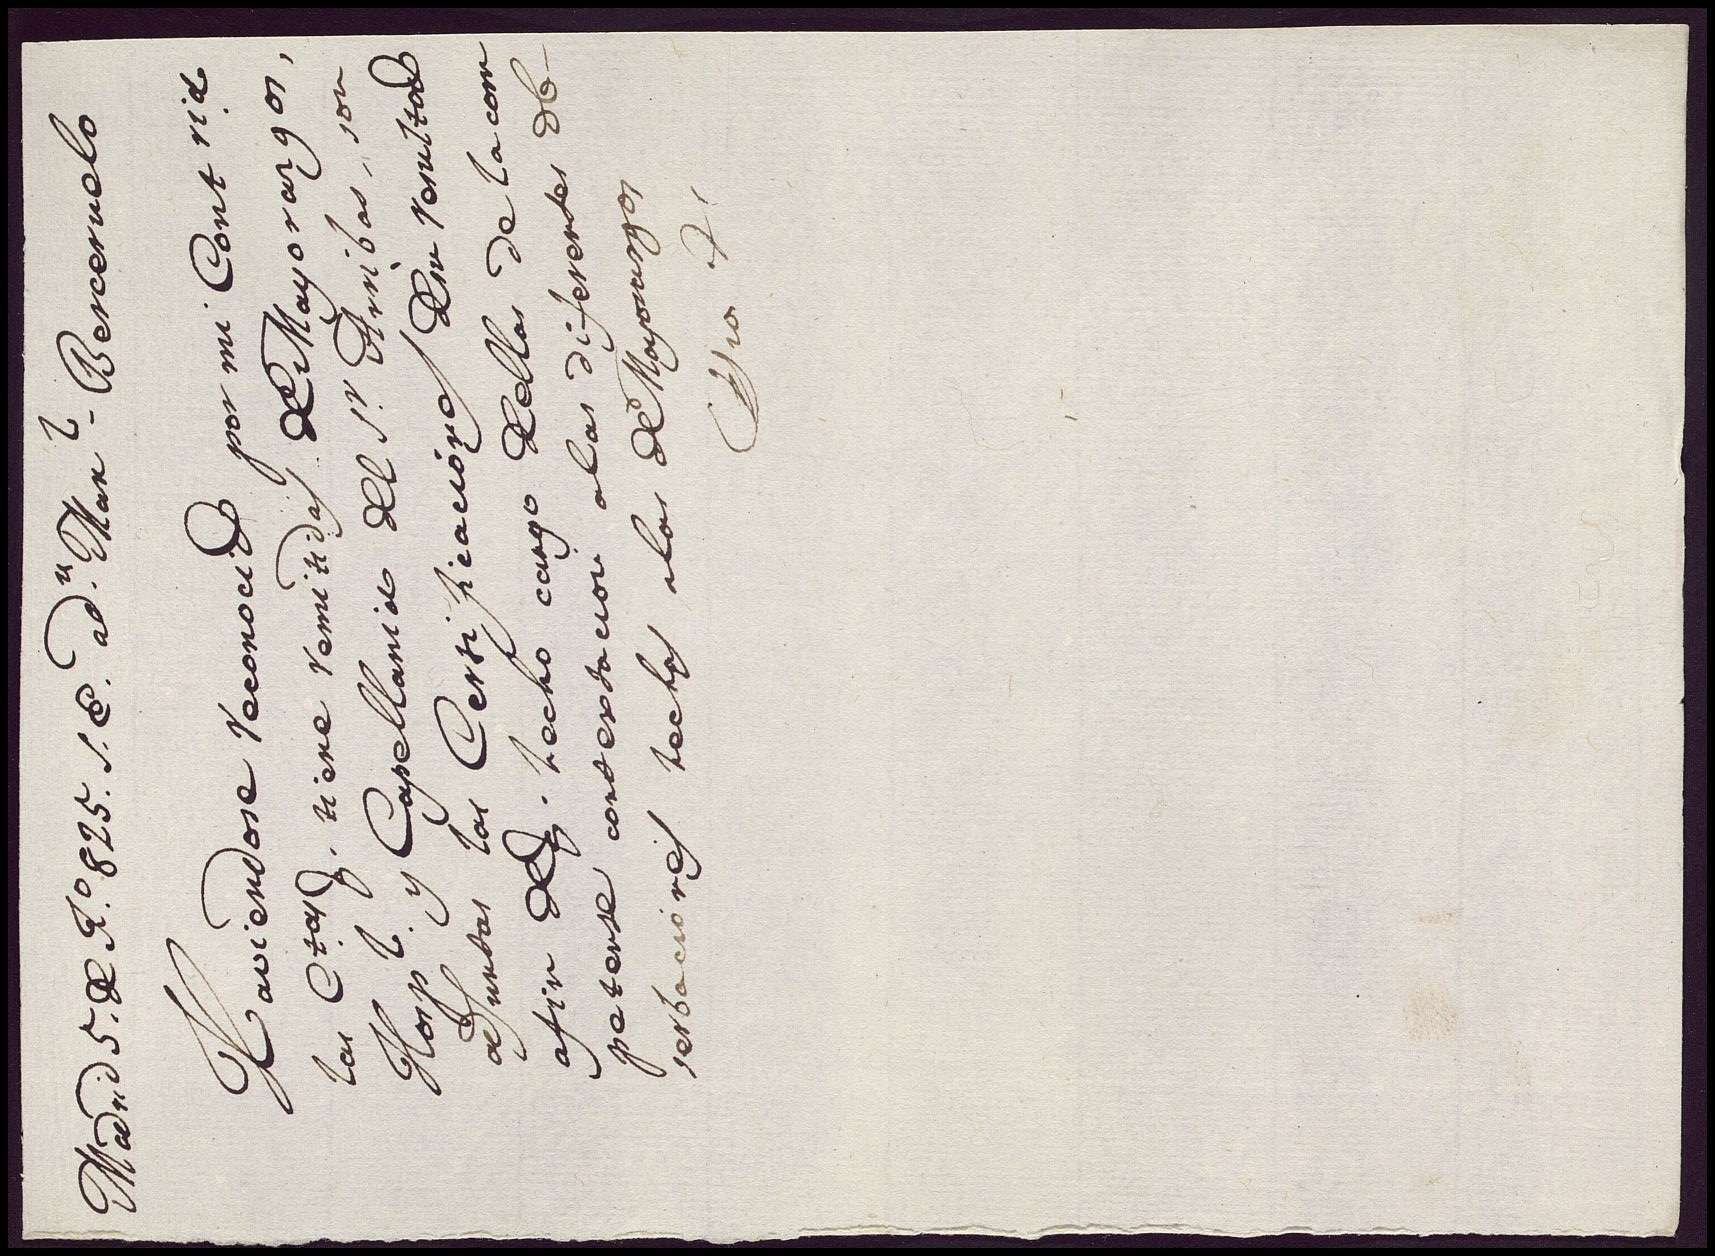 Madrid 5. de F.o 825. S. E. a dn. Man.l Berceruelo
Haviendose reconocido por mi Contrid.
las Ctas. q. tiene remitidas de Mayorazgos,
Hosp.l y Capellania del Sr. Arribas, son
adjuntas las Certificaciones de su resultado
afin de q. hecho cargo de ellas de la com
petente contestacion a las diferentes ob-
serbaciones hechas a las de Mayorazgos